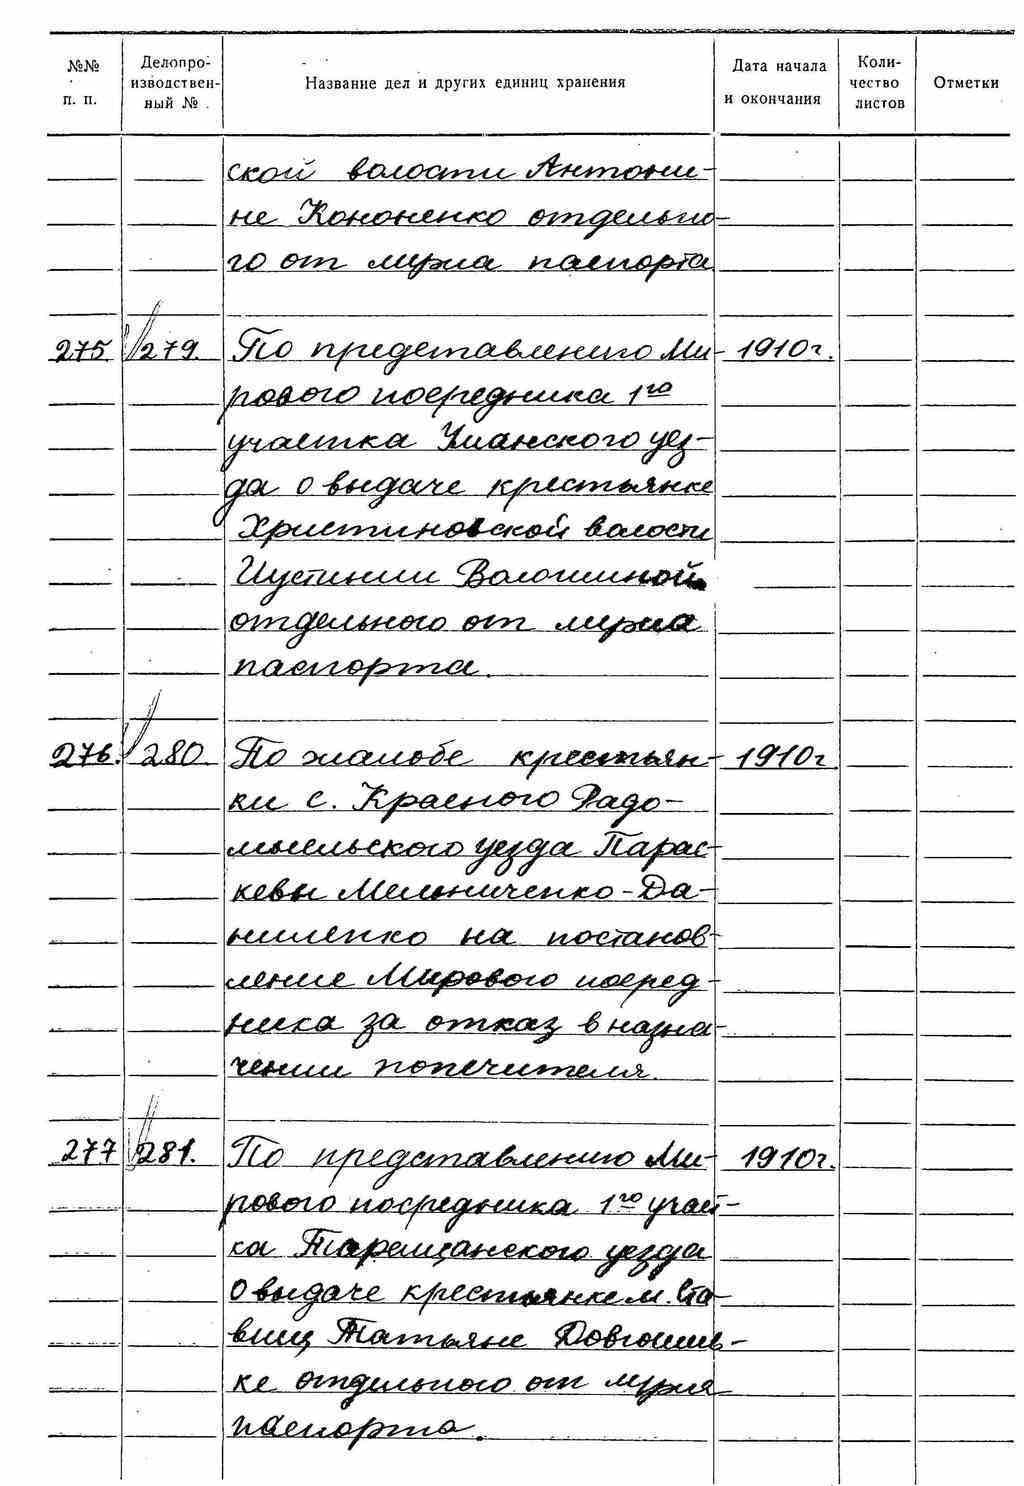 №№ п. п.
Делопро-
изводствен-
ный №
Название дел и других единиц хранения
Дата начала
и окончания
Коли-
чество
листов
Отметки
ской волости Антони-
не Кононенко отдельно-
го от мужа паспорта
275 279. По представлению Ми- 1910г.
рового посредника 1го
участка Уманского уез-
да о выдаче крестьянке
Христиновской волости
Иустинии Волошиной
отдельного от мужа
паспорта.
276. 280. По жалобе крестьян- 1910г
ки с. Красного Радо-
мысльского уезда Парас-
кевы Мельниченко-Да-
ниленко на постанов-
ление Мирового посред-
ника за отказ в назна-
чении попечителя.
277 281. По представлению Ми- 1910г.
рового посредника 1го учас-
ка Таращанского уезда
о выдаче крестьянке м. Ста-
вищ Татьяне Довгошив-
ке отдельного от мужа
паспорта.